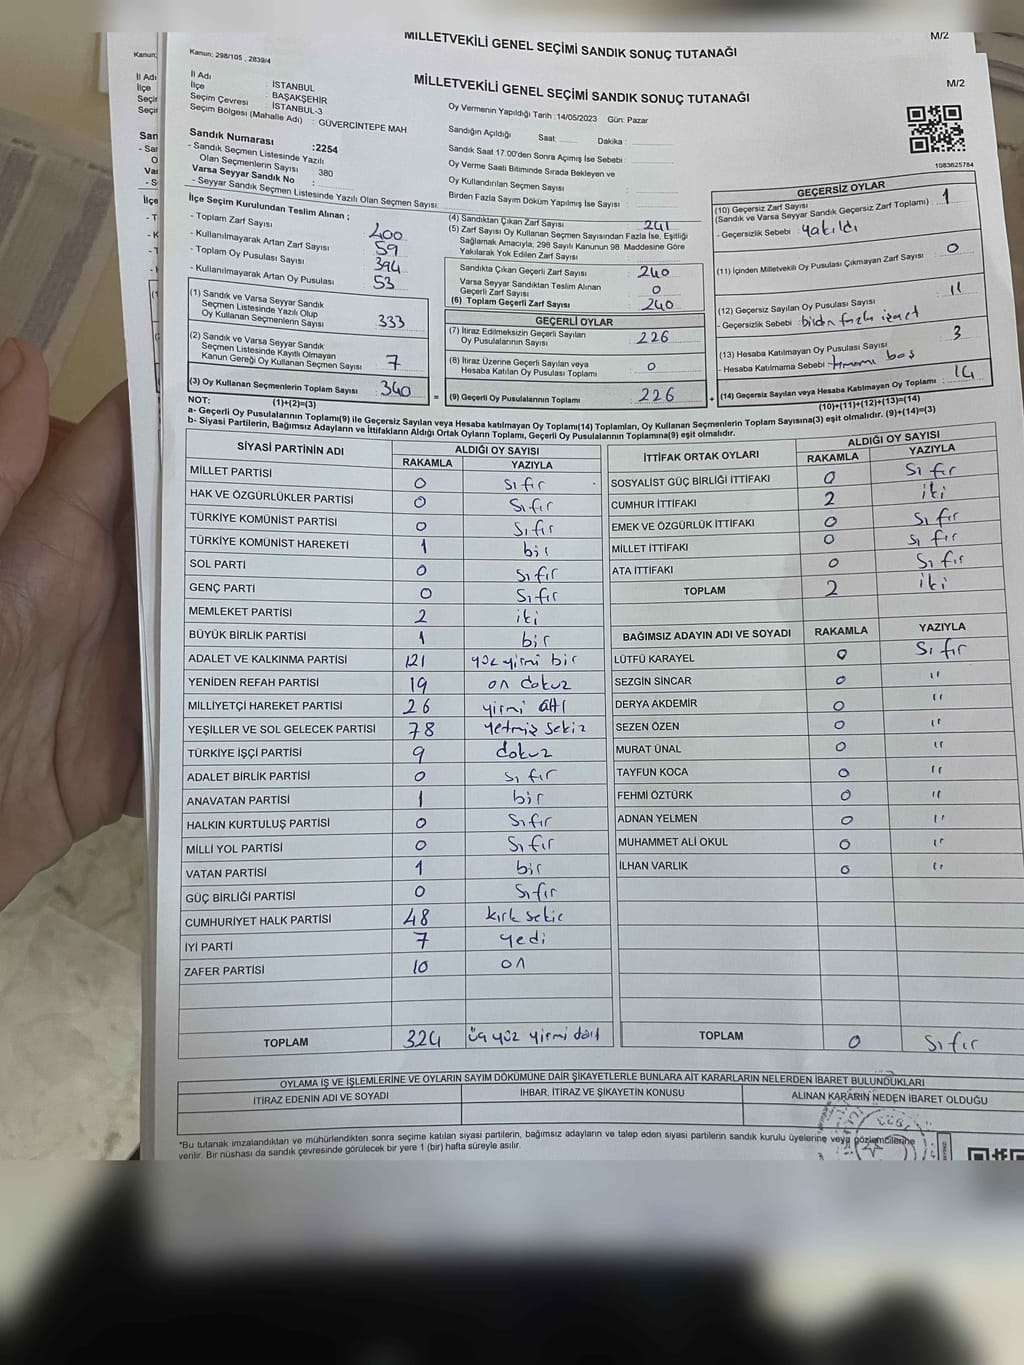 MİLLETVEKİLİ GENEL SEÇİMİ SANDIK SONUÇ TUTANAĞI
M/2
Kanun:
İl Adı
İlçe
Kanun: 298/105 , 2839/4
MİLLETVEKİLİ GENEL SEÇİMİ SANDIK SONUÇ TUTANAĞI
M/2
İl Adı : İSTANBUL
İlçe : BAŞAKŞEHİR
Seçim Çevresi : İSTANBUL-3
Seçim Bölgesi (Mahalle Adı) : GÜVERCİNTEPE MAH
Oy Vermenin Yapıldığı Tarih :14/05/2023 Gün: Pazar
Sandığın Açıldığı Saat: Dakika :
Sandık Saat 17.00'den Sonra Açımış İse Sebebi :
Oy Verme Saati Bitiminde Sırada Bekleyen ve
Oy Kullandırılan Seçmen Sayısı :
Birden Fazla Sayım Döküm Yapılmış İse Sayısı :
1083625784
Sandık Numarası :2254
- Sandık Seçmen Listesinde Yazılı
Olan Seçmenlerin Sayısı : 380
Varsa Seyyar Sandık No :
- Seyyar Sandık Seçmen Listesinde Yazılı Olan Seçmen Sayısı:
İlçe Seçim Kurulundan Teslim Alınan ;
- Toplam Zarf Sayısı 400
- Kullanılmayarak Artan Zarf Sayısı 59
- Toplam Oy Pusulası Sayısı 394
- Kullanılmayarak Artan Oy Pusulası 53
(1) Sandık ve Varsa Seyyar Sandık
Seçmen Listesinde Yazılı Olup
Oy Kullanan Seçmenlerin Sayısı 333
(2) Sandık ve Varsa Seyyar Sandık
Seçmen Listesinde Kayıtlı Olmayan
Kanun Gereği Oy Kullanan Seçmen Sayısı 7
(3) Oy Kullanan Seçmenlerin Toplam Sayısı 340
(1)+(2)=(3)
(4) Sandıktan Çıkan Zarf Sayısı 241
(5) Zarf Sayısı Oy Kullanan Seçmen Sayısından Fazla İse, Eşitliği
Sağlamak Amacıyla, 298 Sayılı Kanunun 98. Maddesine Göre
Yakılarak Yok Edilen Zarf Sayısı
Sandıkta Çıkan Geçerli Zarf Sayısı 240
Varsa Seyyar Sandıktan Teslim Alınan
Geçerli Zarf Sayısı 0
(6) Toplam Geçerli Zarf Sayısı 240
GEÇERLİ OYLAR
(7) İtiraz Edilmeksizin Geçerli Sayılan
Oy Pusulalarının Sayısı 226
(8) İtiraz Üzerine Geçerli Sayılan veya
Hesaba Katılan Oy Pusulası Toplamı 0
= (9) Geçerli Oy Pusulalarının Toplamı 226
GEÇERSİZ OYLAR
(10) Geçersiz Zarf Sayısı
(Sandık ve Varsa Seyyar Sandık Geçersiz Zarf Toplamı) : 1
- Geçersizlik Sebebi : Yakıldı
(11) İçinden Milletvekili Oy Pusulası Çıkmayan Zarf Sayısı : 0
(12) Geçersiz Sayılan Oy Pusulası Sayısı 11
- Geçersizlik Sebebi : birden fazla işaret
(13) Hesaba Katılmayan Oy Pusulası Sayısı : 3
- Hesaba Katılmama Sebebi : tmamı boş
+ (14) Geçersiz Sayılan veya Hesaba Katılmayan Oy Toplamı : 14
(10)+(11)+(12)+(13)=(14)
NOT:
a- Geçerli Oy Pusulalarının Toplamı(9) ile Geçersiz Sayılan veya Hesaba katılmayan Oy Toplamı(14) Toplamları, Oy Kullanan Seçmenlerin Toplam Sayısına(3) eşit olmalıdır. (9)+(14)=(3)
b- Siyasi Partilerin, Bağımsız Adayların ve İttifakların Aldığı Ortak Oyların Toplamı, Geçerli Oy Pusulalarının Toplamına(9) eşit olmalıdır.
SİYASİ PARTİNİN ADI ALDIĞI OY SAYISI
RAKAMLA YAZIYLA
MİLLET PARTİSİ 0 sıfır
HAK VE ÖZGÜRLÜKLER PARTİSİ 0 sıfır
TÜRKİYE KOMÜNİST PARTİSİ 0 sıfır
TÜRKİYE KOMÜNİST HAREKETİ 1 bir
SOL PARTİ 0 sıfır
GENÇ PARTİ 0 sıfır
MEMLEKET PARTİSİ 2 iki
BÜYÜK BİRLİK PARTİSİ 1 bir
ADALET VE KALKINMA PARTİSİ 121 yüz yirmi bir
YENİDEN REFAH PARTİSİ 19 on dokuz
MİLLİYETÇİ HAREKET PARTİSİ 26 yirmi altı
YEŞİLLER VE SOL GELECEK PARTİSİ 78 yetmiş sekiz
TÜRKİYE İŞÇİ PARTİSİ 9 dokuz
ADALET BİRLİK PARTİSİ 0 sıfır
ANAVATAN PARTİSİ 1 bir
HALKIN KURTULUŞ PARTİSİ 0 sıfır
MİLLİ YOL PARTİSİ 0 sıfır
VATAN PARTİSİ 1 bir
GÜÇ BİRLİĞİ PARTİSİ 0 sıfır
CUMHURİYET HALK PARTİSİ 48 kırk sekiz
İYİ PARTİ 7 yedi
ZAFER PARTİSİ 10 on
TOPLAM 324 üç yüz yirmi dört
İTTİFAK ORTAK OYLARI ALDIĞI OY SAYISI
RAKAMLA YAZIYLA
SOSYALİST GÜÇ BİRLİĞİ İTTİFAKI 0 sıfır
CUMHUR İTTİFAKI 2 iki
EMEK VE ÖZGÜRLÜK İTTİFAKI 0 sıfır
MİLLET İTTİFAKI 0 sıfır
ATA İTTİFAKI 0 sıfır
TOPLAM 2 iki
BAĞIMSIZ ADAYIN ADI VE SOYADI RAKAMLA YAZIYLA
LÜTFÜ KARAYEL 0 sıfır
SEZGİN SİNCAR 0 "
DERYA AKDEMİR 0 "
SEZEN ÖZEN 0 "
MURAT ÜNAL 0 "
TAYFUN KOCA 0 "
FEHMİ ÖZTÜRK 0 "
ADNAN YELMEN 0 "
MUHAMMET ALİ OKUL 0 "
İLHAN VARLIK 0 "
TOPLAM 0 sıfır
OYLAMA İŞ VE İŞLEMLERİNE VE OYLARIN SAYIM DÖKÜMÜNE DAİR ŞİKAYETLERLE BUNLARA AİT KARARLARIN NELERDEN İBARET BULUNDUKLARI
İTİRAZ EDENİN ADI VE SOYADI İHBAR, İTİRAZ VE ŞİKAYETİN KONUSU ALINAN KARARIN NEDEN İBARET OLDUĞU
*Bu tutanak imzalandıktan ve mühürlendikten sonra seçime katılan siyasi partilerin, bağımsız adayların ve talep eden siyasi partilerin sandık kurulu üyelerine veya gözlemcilerine
verilir. Bir nüshası da sandık çevresinde görülecek bir yere 1 (bir) hafta süreyle asılır.